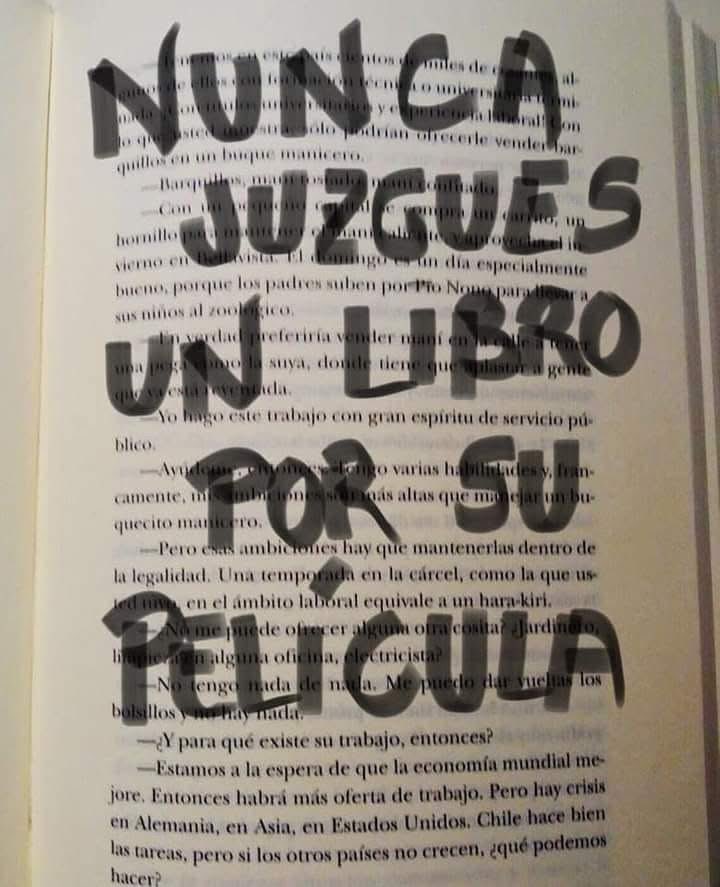 NUNCA
JUZGUES
UN LIBRO
POR SU
PELÍCULA
—Tenemos en este país cientos de miles de al-
lo que usted muestra sólo podrían ofrecerle vender bar-
quillos en un buque manicero.
—Barquillos, maní tostado, maní confitado.
—Con un pequeño capital se compra un carrito, un
hornillo para mantener el maní caliente y aprovecha el in-
vierno en Bellavista. El domingo es un día especialmente
bueno, porque los padres suben por Pío Nono para llevar a
sus niños al zoológico.
—En verdad preferiría vender maní en la calle a tener
una pega como la suya, donde tiene que aplastar a gente
que ya está reventada.
—Yo hago este trabajo con gran espíritu de servicio pú-
blico.
—Ayúdeme, entonces. Tengo varias habilidades y, fran-
camente, mis ambiciones son más altas que manejar un bu-
quecito manicero.
—Pero esas ambiciones hay que mantenerlas dentro de
la legalidad. Una temporada en la cárcel, como la que us-
ted tuvo, en el ámbito laboral equivale a un hara-kiri.
—¿No me puede ofrecer alguna otra cosita? ¿Jardinero,
limpieza en alguna oficina, electricista?
—No tengo nada de nada. Me puedo dar vueltas los
bolsillos y no hay nada.
—¿Y para qué existe su trabajo, entonces?
—Estamos a la espera de que la economía mundial me-
jore. Entonces habrá más oferta de trabajo. Pero hay crisis
en Alemania, en Asia, en Estados Unidos. Chile hace bien
las tareas, pero si los otros países no crecen, ¿qué podemos
hacer?